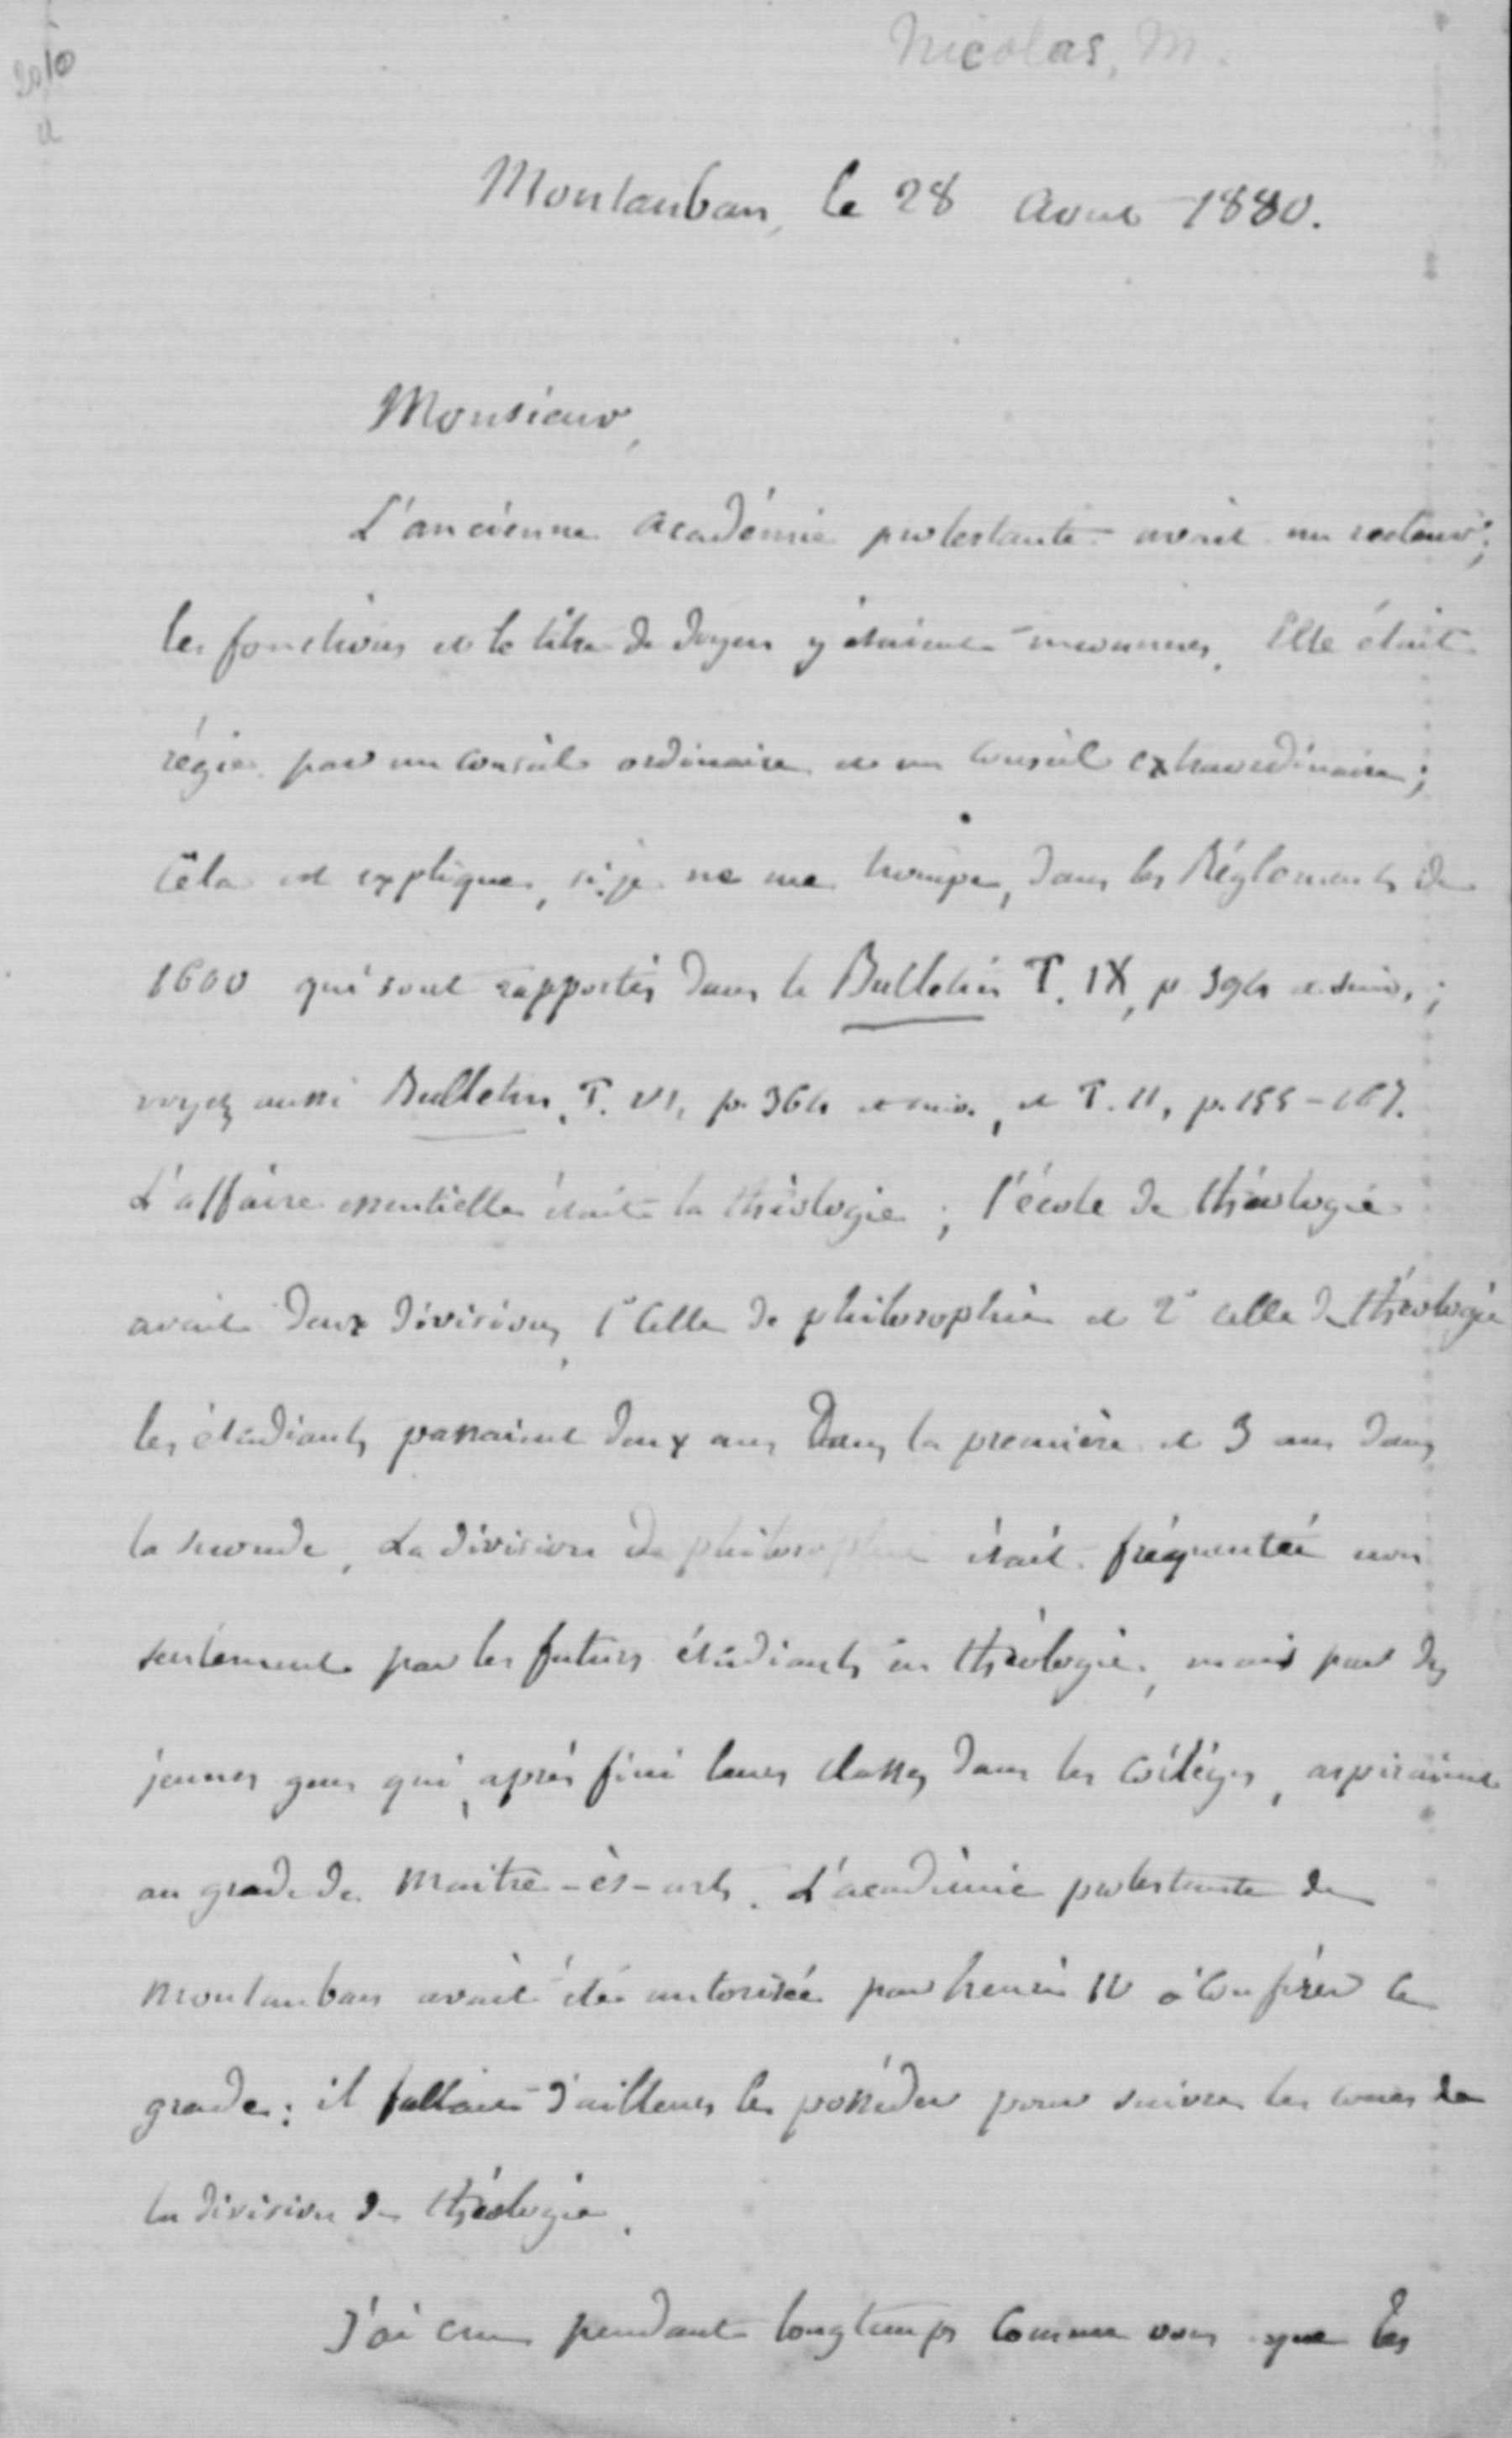 Nicolas, M.
Montauban, le 28 Aout 1880.
Monsieur,
L'ancienne académie protestante avait un recteur;
les fonctions et le titre de doyen y étaient inconnues. Elle était
régie par un conseil ordinaire et un conseil extraordinaire;
Cela est expliqué, si je ne me trompe, dans les Réglements de
1600 qui sont rapportés dans le Bulletin T. IX, p. 394 et suiv.;
voyez aussi Bulletin, T. VI, p. 364 et suiv., et T. II, p. 155-167.
L'affaire essentielle était la théologie; l'école de théologie
avait deux divisions, 1° Celle de philosophie et 2° celle de théologie
les étudiants passaient deux ans Dans la première et 3 ans dans
la seconde. La division de philosophie était fréquentée non
seulement par les futurs étudiants en théologie, mais par des
jeunes gens qui, après fini leurs classes dans les collèges, aspiraient
au grade de maitre-ès-arts. L'académie protestante de
Montauban avait été autorisée par henri IV à conférer ce
grade; il fallait d'ailleurs le posséder pour suivre les cours de
la division de théologie.
J'ai cru pendant longtemps comme vous que les